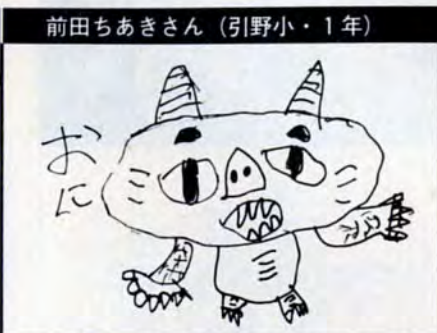 前田ちあきさん（引野小・1年）
おに